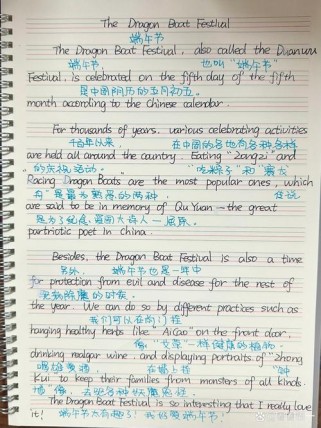 The Dragon Boat Festival
端午节
The Dragon Boat Festival, also called the Duanwu
端午节, 也叫"端午节"
Festival, is celebrated on the fifth day of the fifth
是中国阴历的五月初五。
month according to the Chinese calendar.
For thousands of years, various celebrating activities
千百年以来, 在中国的各地有各种各样
are held all around the country. Eating "Zongzi" and
的庆祝活动。 "吃粽子"和"赛龙
Racing Dragon Boats are the most popular ones, which
舟"是最为熟悉的两种,
are said to be in memory of Qu Yuan — the great
是为了纪念, 爱国大诗人—屈原。
partriotic poet in China.
Besides, the Dragon Boat Festival is also a time
另外, 端午节也是一年中
for protection from evil and disease for the rest of
的时候。
the year. We can do so by different practices such as
我们可以在前门挂
hanging healthy herbs like "Aicao" on the front door,
像"艾草"一样健康的植物。
drinking realgar wine, and displaying portraits of "Zhong
喝雄黄酒, 在墙上挂 "钟
Kui" to keep their families from monsters of all kinds.
The Dragon Boat Festival is so interesting that I really love
it! 端午节太有趣了! 我好爱端午节!